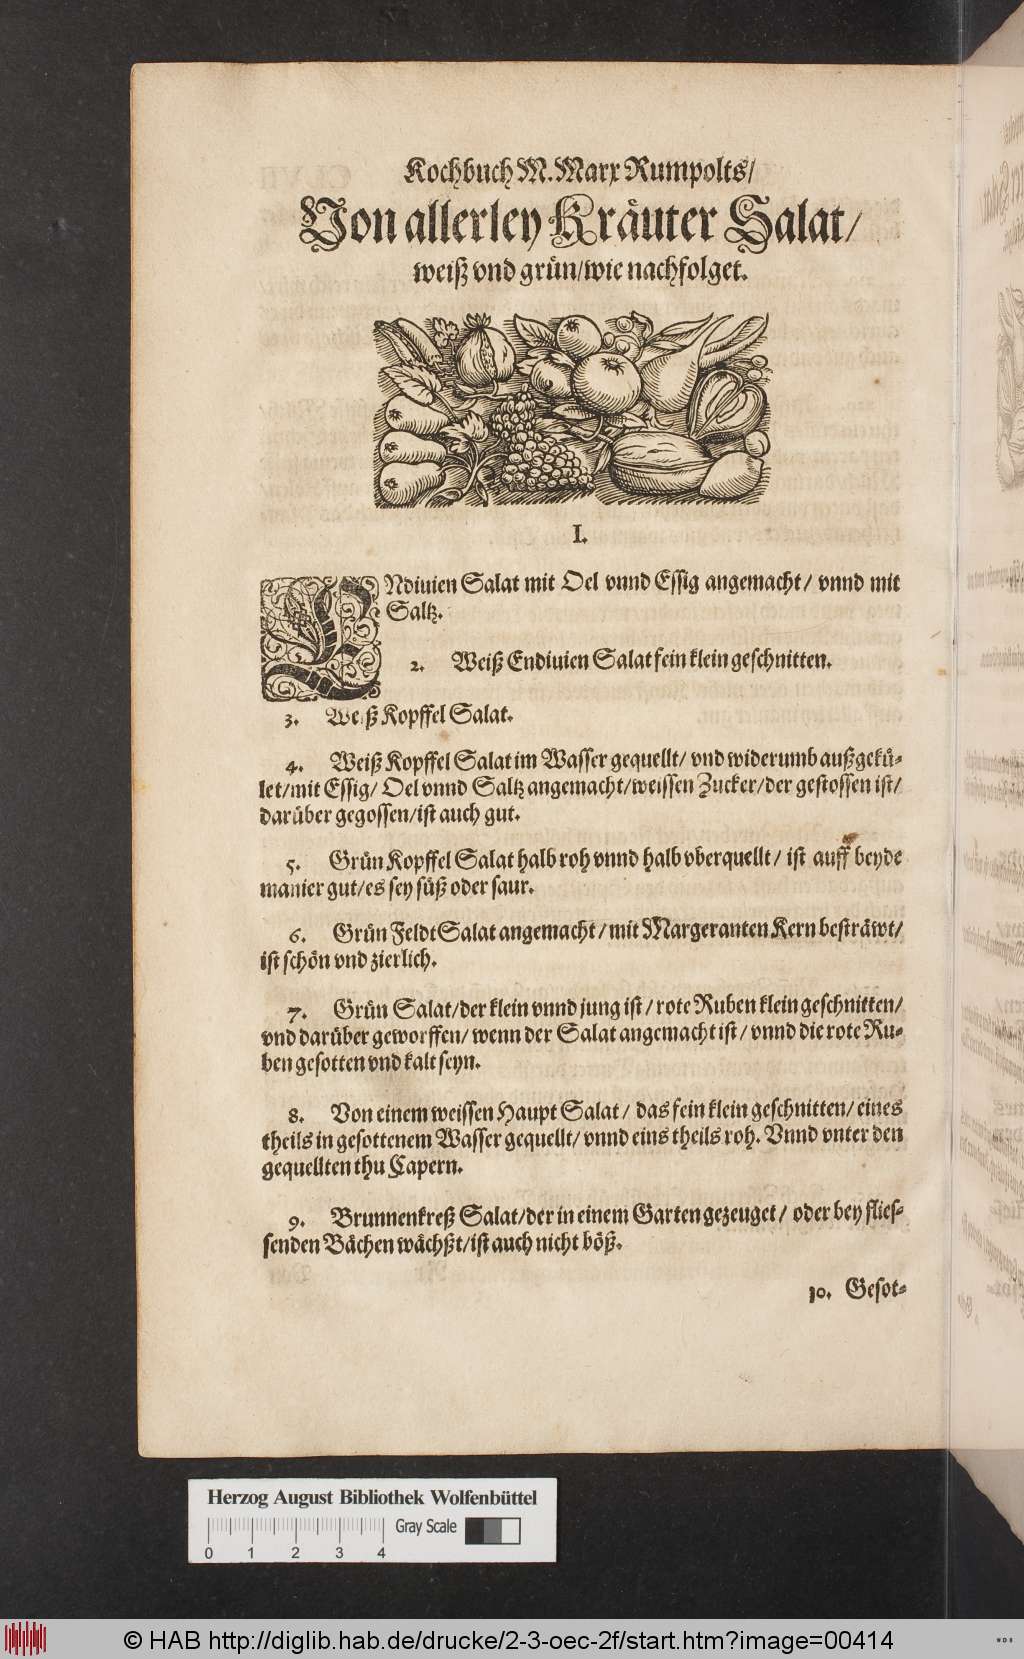 Kochbuch M. Marx Rumpolts/
Von allerley Kräuter Salat/
weiß vnd grün/wie nachfolget.
I.
ENdiuien Salat mit Oel vnnd Essig angemacht/ vnnd mit
Saltz.
2. Weiß Endiuien Salat fein klein geschnitten.
3. Weiß Kopffel Salat.
4. Weiß Kopffel Salat im Wasser gequellt/ vnd widerumb außgekü-
let/mit Essig/ Oel vnnd Saltz angemacht/weissen Zucker/der gestossen ist/
darüber gegossen/ist auch gut.
5. Grün Kopffel Salat halb roh vnnd halb vberquellt/ ist auff beyde
manier gut/es sey süß oder saur.
6. Grün Feldt Salat angemacht/mit Margeranten Kern besträwt/
ist schön vnd zierlich.
7. Grün Salat/der klein vnnd jung ist/ rote Ruben klein geschnitten/
vnd darüber geworffen/ wenn der Salat angemacht ist/ vnnd die rote Ru-
ben gesotten vnd kalt seyn.
8. Von einem weissen Haupt Salat/ das fein klein geschnitten/ eines
theils in gesottenem Wasser gequellt/ vnnd eins theils roh. Vnnd vnter den
gequellten thu Capern.
9. Brunnenkreß Salat/der in einem Garten gezeuget/ oder bey flies-
senden Bächen wächßt/ist auch nicht böß.
10. Gesot-
Herzog August Bibliothek Wolfenbüttel
Gray Scale
0 1 2 3 4
© HAB http://diglib.hab.de/drucke/2-3-oec-2f/start.htm?image=00414